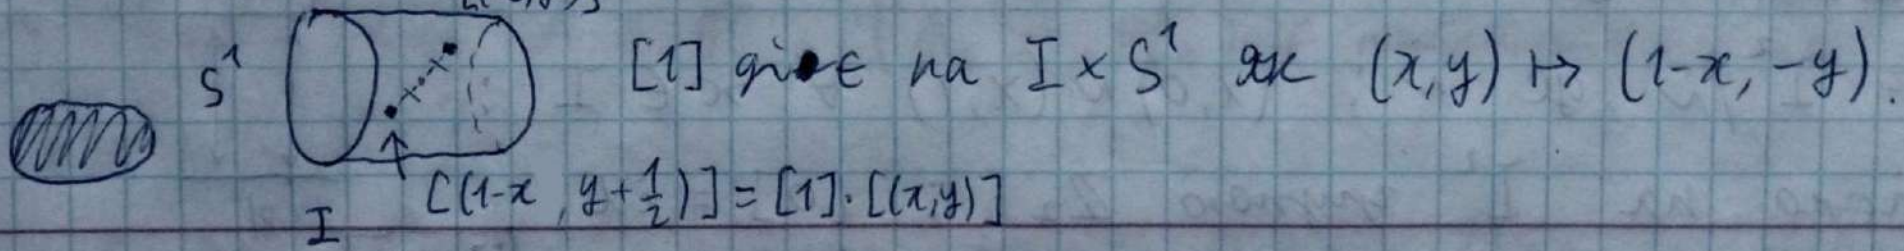 S¹ [1] діє на I × S¹ як (x,y) ↦ (1-x, -y).
[(1-x, y+1/2)] = [1]·[(x,y)]
I